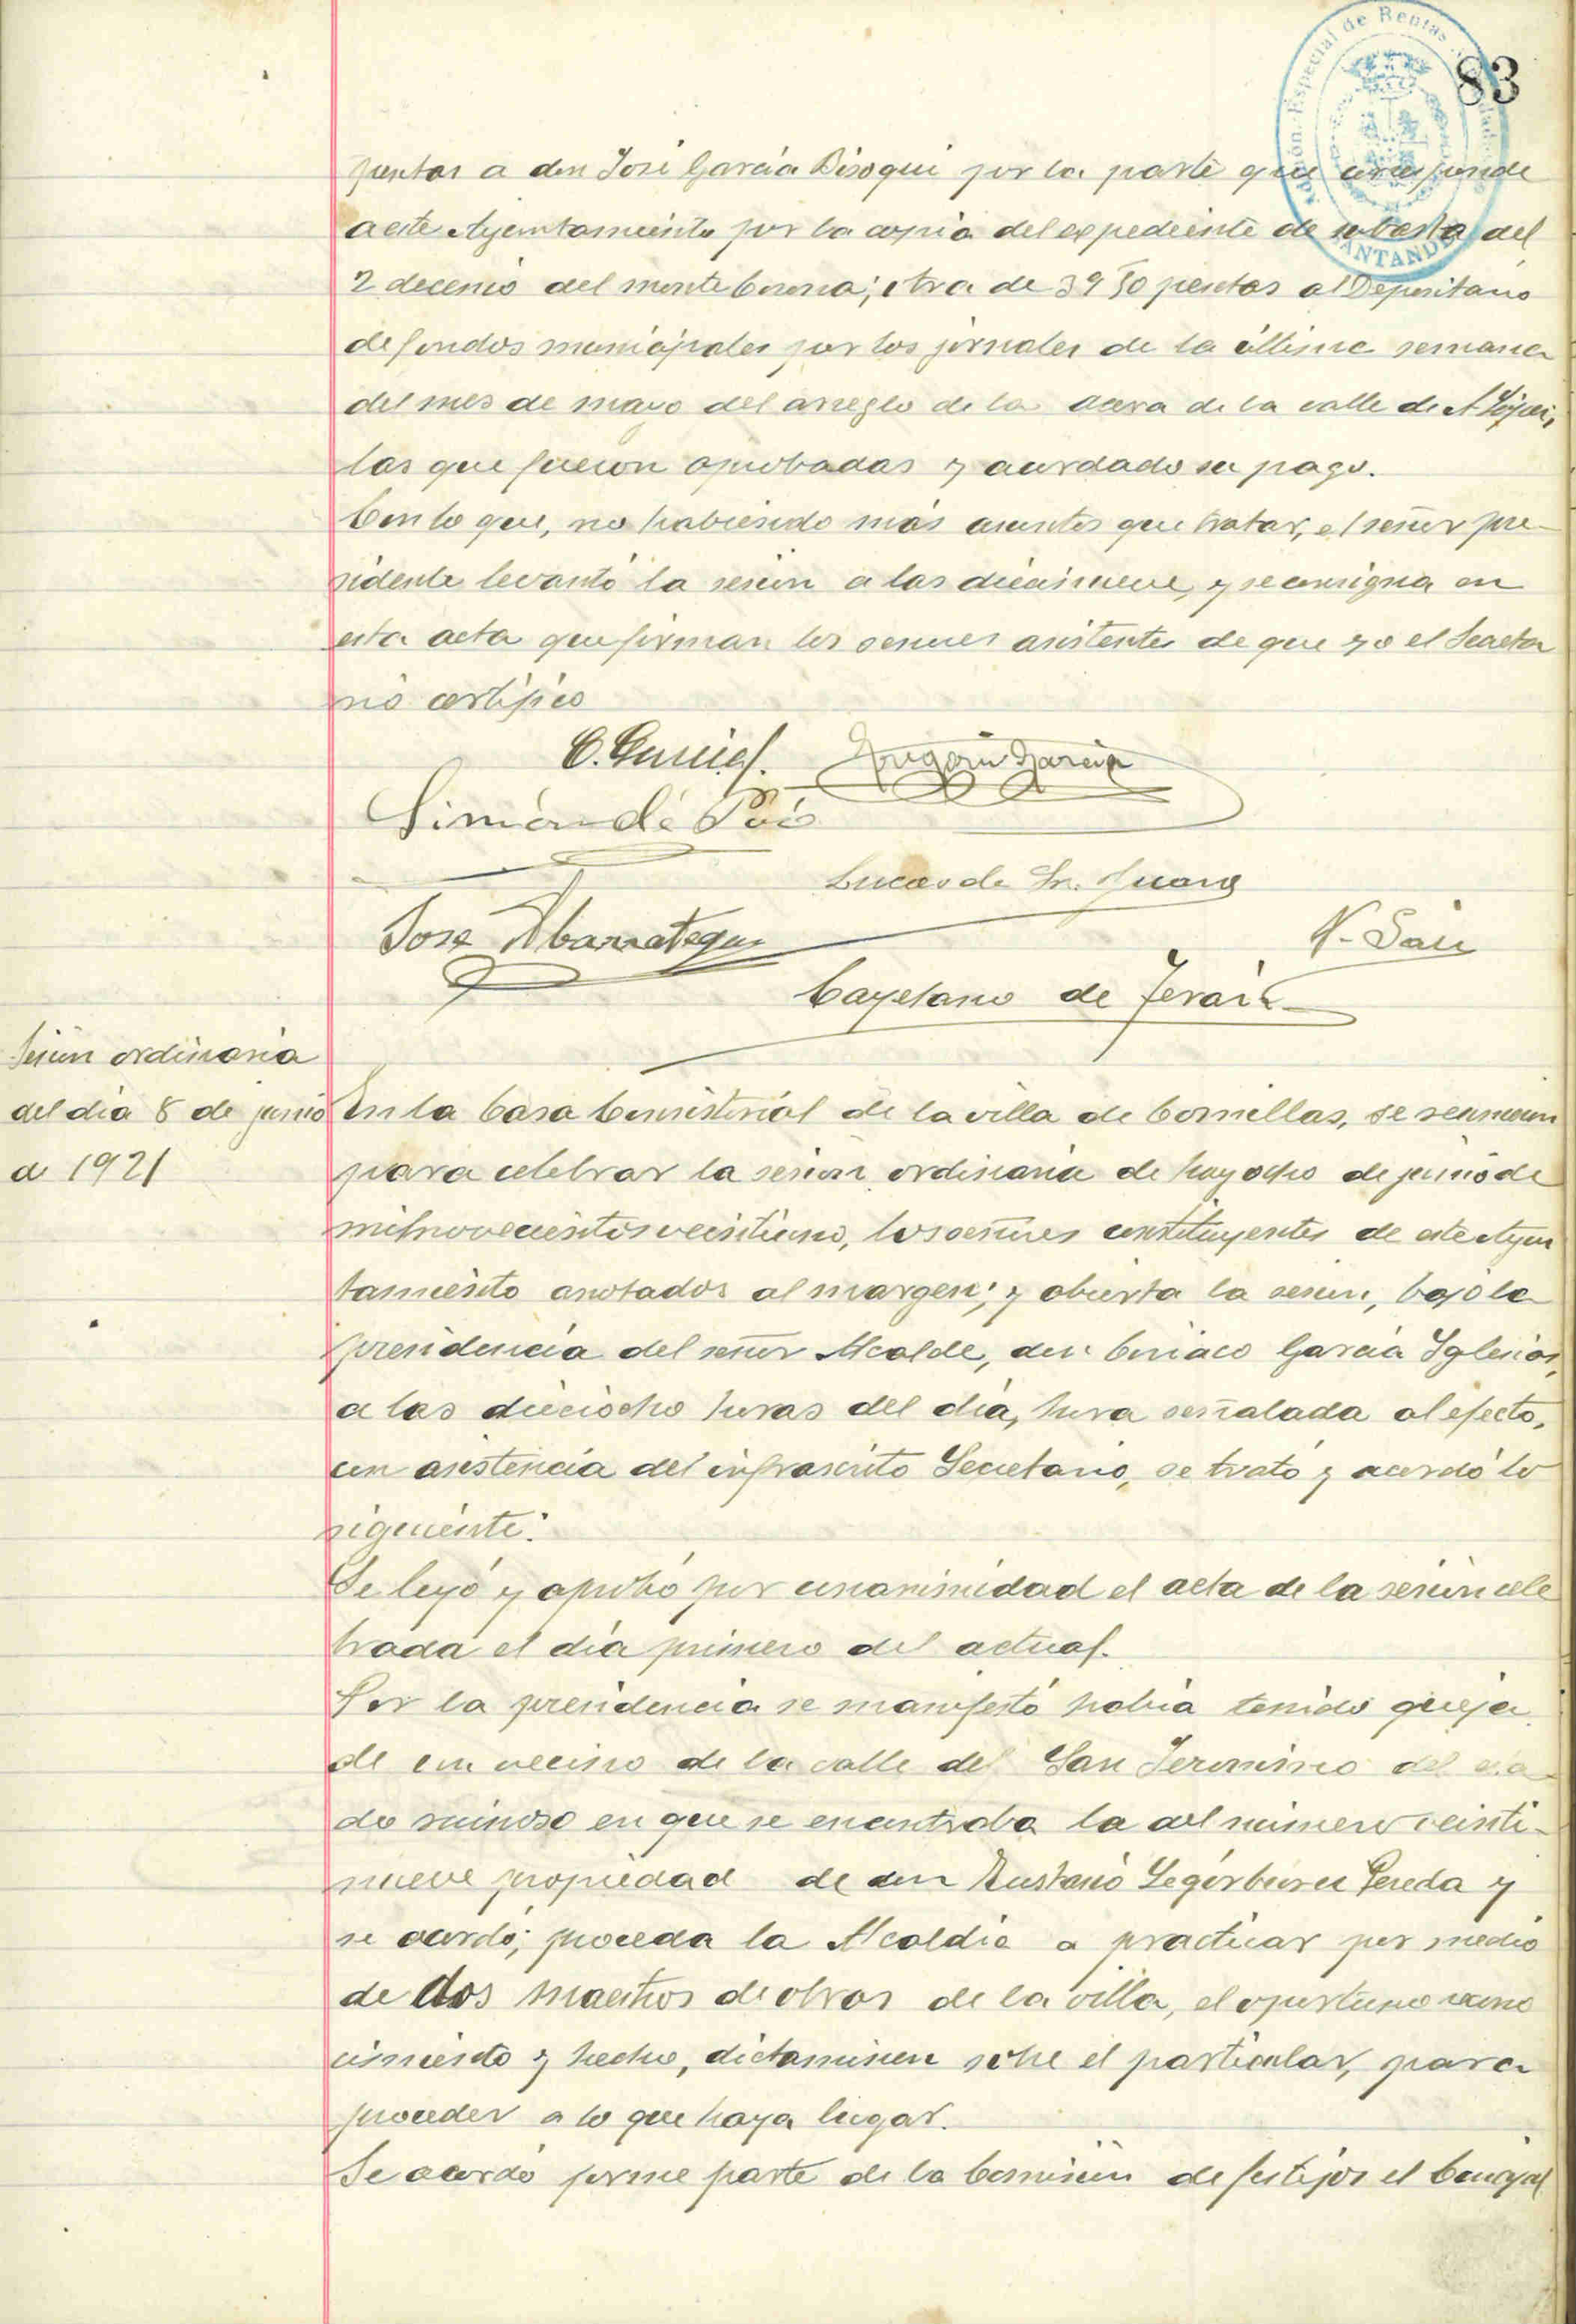 83
pesetas a don José García Bisoqui por la parte que corresponde
a este Ayuntamiento por la copia del expediente de subasta del
2 decenio del monte Corona; otra de 39 50 pesetas al Depositario
de fondos municipales por los jornales de la última semana
del mes de mayo del arreglo de la acera de la calle de A. López,
las que fueron aprobadas y acordado su pago.
Con lo que, no habiendo más asuntos que tratar, el señor pre-
sidente levantó la sesión a las diecinueve, y se consigna en
esta acta que firman los señores asistentes de que yo el Secreta
rio certifico
C. García. Gregorio García
Simón de Poó
Lucas de Sn. Juan
José Abarrategui
N. Saiz
Cayetano de Terán
Sesión ordinaria
del día 8 de junio
de 1921
En la Casa Consistorial de la villa de Comillas, se reunieron
para celebrar la sesión ordinaria de hoy ocho de junio de
mil novecientos veintiuno, los señores constituyentes de este Ayun
tamiento anotados al margen; y abierta la sesión, bajo la
presidencia del señor Alcalde, don Ciriaco García Iglesias,
a las dieciocho horas del día, hora señalada al efecto,
con asistencia del infrascrito Secretario, se trató y acordó lo
siguiente:
Se leyó y aprobó por unanimidad el acta de la sesión cele
brada el día primero del actual.
Por la presidencia se manifestó había tenido queja
de un vecino de la calle del San Jeronimo del esta
do ruinoso en que se encontraba la del número veinti-
nueve propiedad de don Eustasio Legórburu Pereda y
se acordó; proceda la Alcaldía a practicar por medio
de dos maestros de obras de la villa, el oportuno recono
cimiento y hecho, dictaminen sobre el particular, para
proceder a lo que haya lugar.
Se acordó forme parte de la Comisión de festejos el Concejal